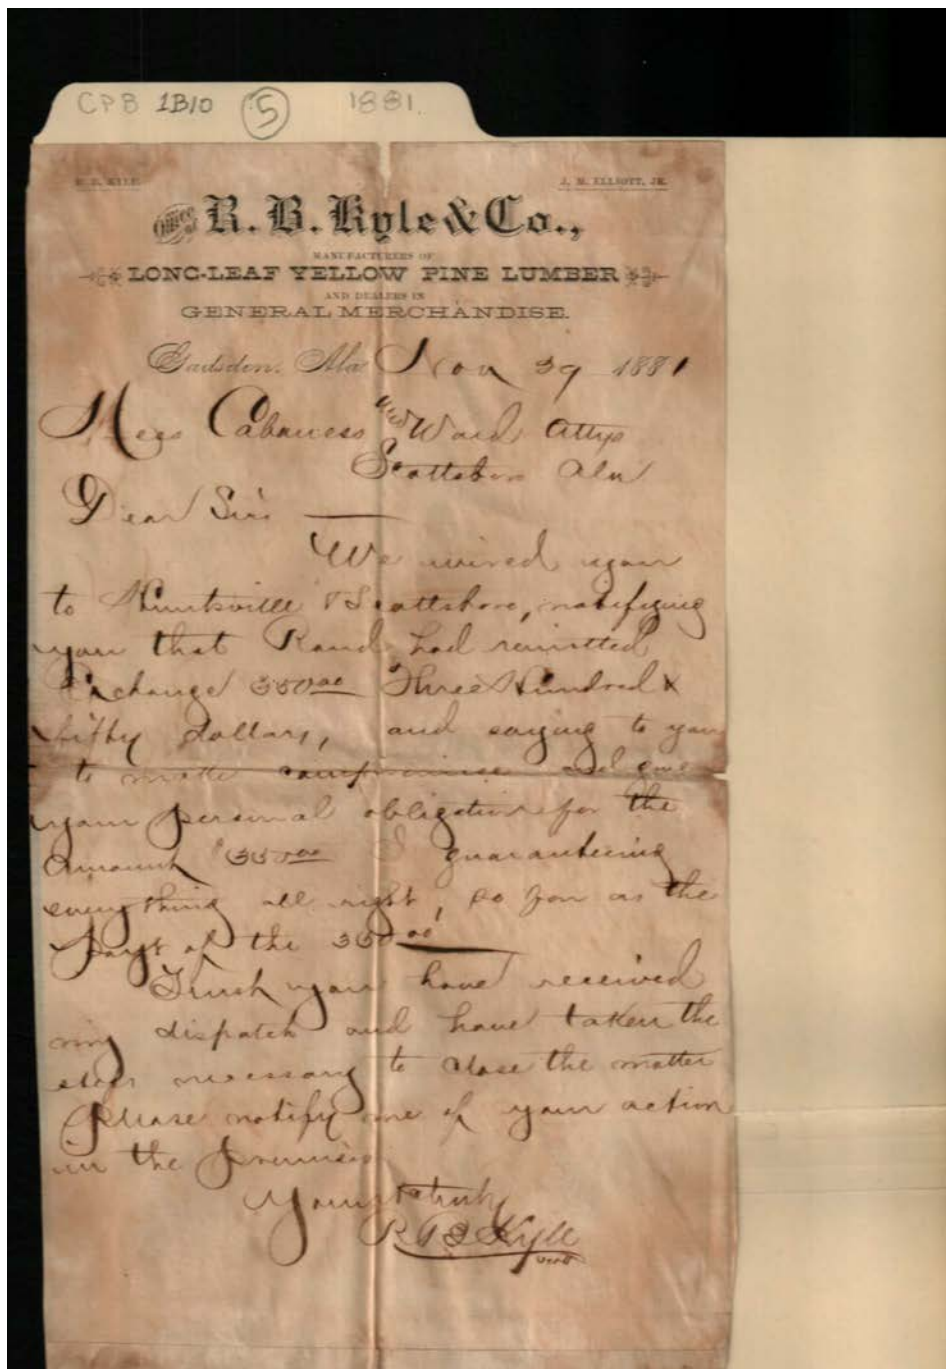 CPB 1B10 5 1881.
R. B. KYLE. J. M. ELLIOTT, JR.
Office of R. B. Kyle & Co.,
MANUFACTURERS OF
LONG-LEAF YELLOW PINE LUMBER
AND DEALERS IN
GENERAL MERCHANDISE.
Gadsden, Ala Nov 29 1881
Mess Cabaness and Ward Attys
Scottsboro Ala
Dear Sirs
We wired you
to Huntsville & Scottsboro, notifying
you that Rand had remitted
Exchange 350.00 Three Hundred &
fifty dollars, and saying to you
to make compromise and give
your personal obligation for the
amount $350.00 I guaranteeing
everything all right, so far as the
payt of the 350.00
Trust you have received
my dispatch and have taken the
steps necessary to close the matter
Please notify me of your action
in the premises
Yours truly
R B Kyle